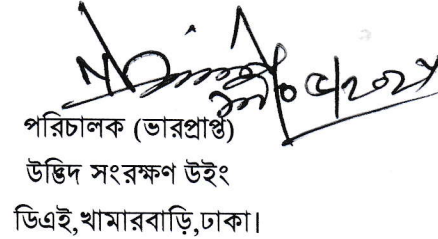 পরিচালক (ভারপ্রাপ্ত)
উদ্ভিদ সংরক্ষণ উইং
ডিএই,খামারবাড়ি,ঢাকা।